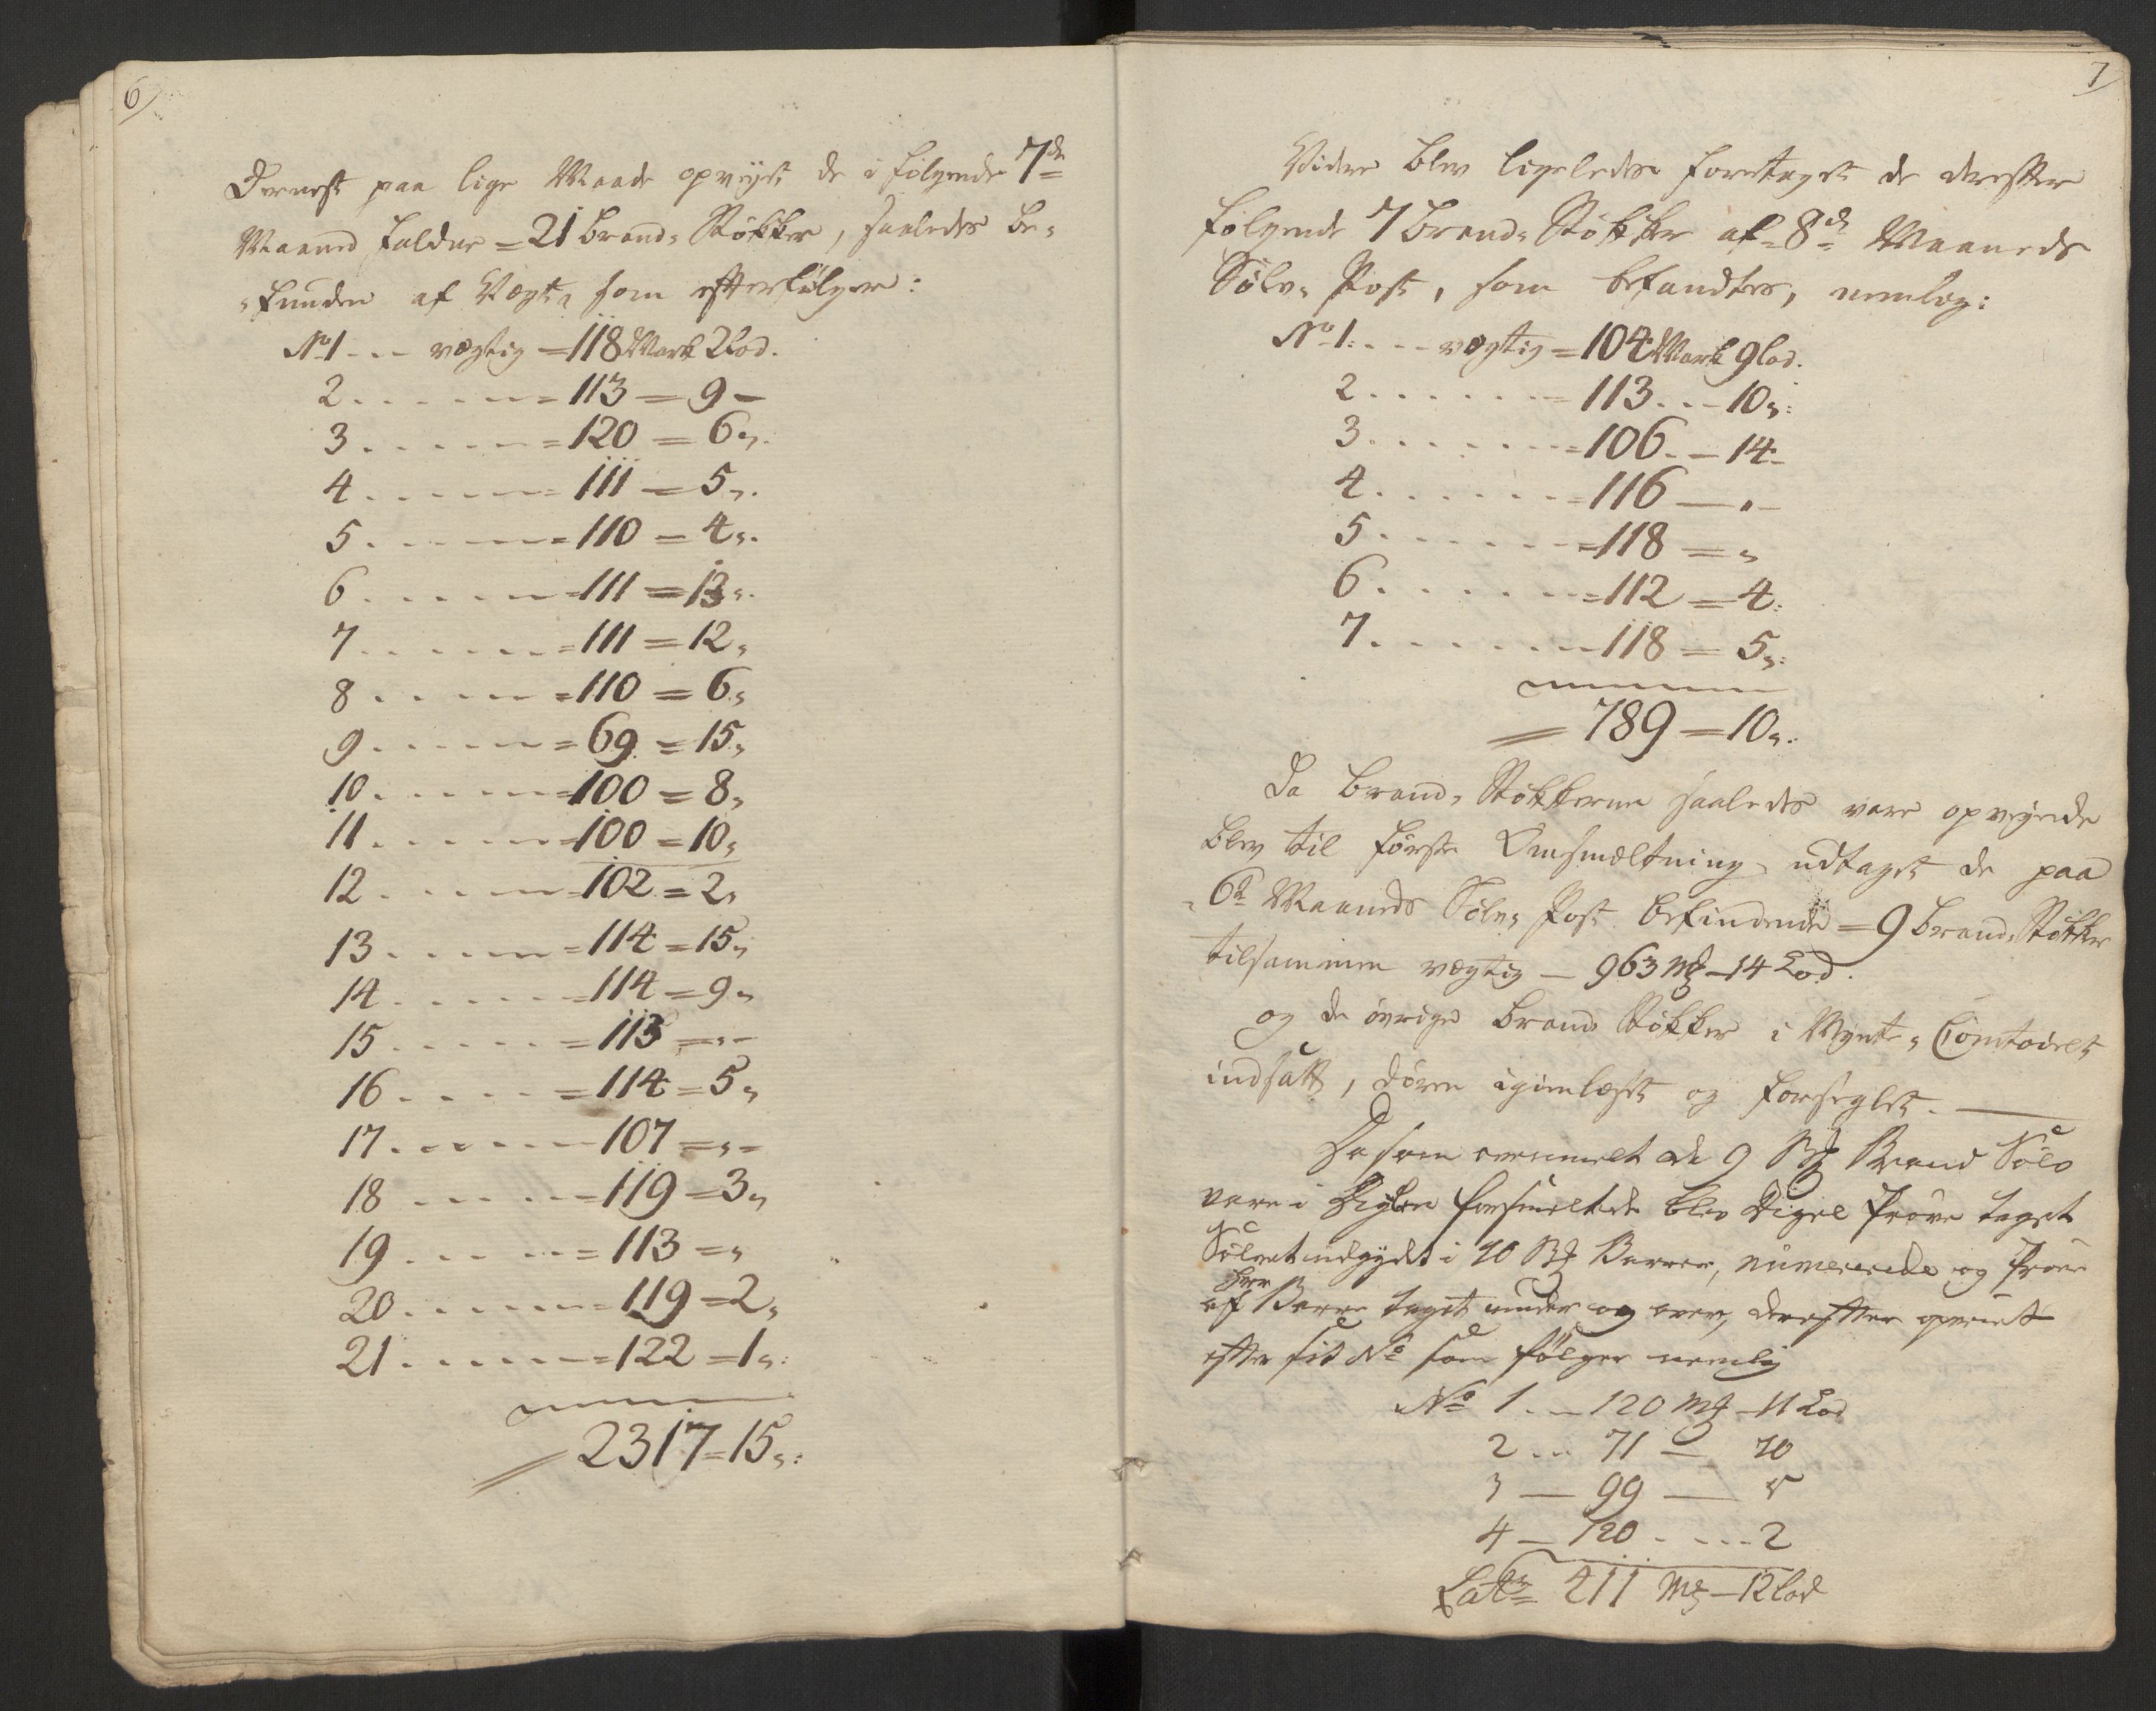 6
Dernest paa lige Maade opvejet de i følgende 7de
Maaned faldne = 21 Brand-Støkker, saaledes be-
-funden af Vægt, som efterfølger:
No 1 - - - vægtig = 118 Mark 2 Lod.
2 . . . . . . = 113 = 9 -
3 . . . . . . = 120 = 6 "
4 . . . . . . = 111 = 5 "
5 . . . . . . = 110 = 4 "
6 . . . . . . = 111 = 13 "
7 . . . . . . = 111 = 12 "
8 . . . . . . = 110 = 6 "
9 . . . . . . = 69 = 15 "
10 . . . . . . = 100 = 8 "
11 . . . . . . = 100 = 10 "
12 . . . . . . = 102 = 2 "
13 . . . . . . = 114 = 15 "
14 . . . . . . = 114 = 9 "
15 . . . . . . = 113 = " -
16 . . . . . . = 114 = 5 "
17 . . . . . . = 107 = " -
18 . . . . . . = 119 = 3 "
19 . . . . . . = 113 = "
20 . . . . . . = 119 = 2 "
21 . . . . . . = 122 = 1 "
= 2317 = 15 "
7
Vidre blev ligeledes foretaget de derefter
følgende 7 Brand-Støkker af 8de Maaneds
Sølv-Post, som befandtes, nemlig:
No 1. . - - vægtig = 104 Mark 9 Lod.
2 . . . . . . = 113 . . - 10 "
3 . . . . . . = 106 . - 14 -
4 . . . . . . = 116 — " -
5 . . . . . . = 118 = "
6 . . . . . . = 112 = 4 "
7 . . . . . . = 118 = 5 "
= 789 = 10 "
Da Brand-Støkkerne saaledes vare opvejede
blev til første Omsmæltning udtaget de paa
6te Maaneds Sølv-Post befindende = 9 Brand-Støkker
tilsammen vægtig — 963 Mk - 14 Lod.
og de øvrige Brand Støkker i Mynt-Comtoiret
indsatt, døren igienlaast og forseglet. —
Da som ovenmelt de 9 Stk Brand Sølv
vare i Digelen forsmeltede blev Digel Prøve taget
Sølvet udgydt i 10 Stk Barrer, numererede og Prøve
af hver Barre taget under og over, derefter opveiet
efter sit No som følger nemlig
No 1 . . - 120 Mk - 11 Lod
2 . . . 71 — 10
3 — 99 — 5
4 — 120 . - - . . 2
Latr 411 Mk — 12 Lod